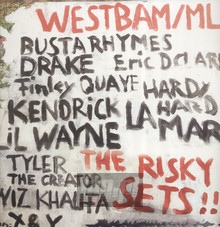 WESTBAM/ML
BUSTA RHYMES
DRAKE Eric D.CLAR
Finley QUAYE HARDY
KENDRICK LAMAR HARD
LiL WAYNE
TYLER THE RISKY
THE CREATOR SETS!!
WIZ KHALIFA
X & Y